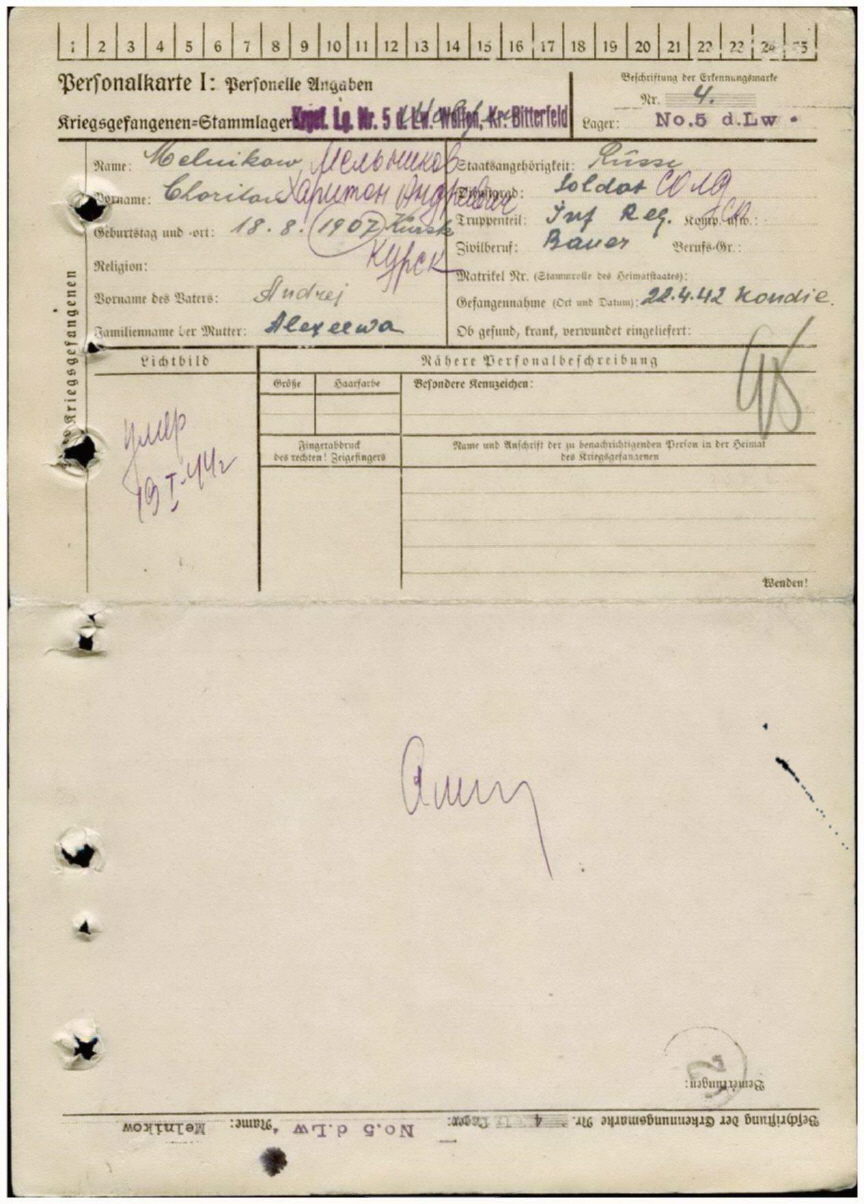 1 2 3 4 5 6 7 8 9 10 11 12 13 14 15 16 17 18 19 20 21 22 23 24 25
Personalkarte I: Personelle Angaben
Beschriftung der Erkennungsmarke
Nr. 4.
Kriegsgefangenen=Stammlager Krgef. Lg. Nr. 5 d. Lw. Wolfen, Kr. Bitterfeld
Lager: No.5 d.Lw.
des Kriegsgefangenen
Name: Melnikow Мельников
Vorname: Chariton Харитон Андреевич
Geburtstag und =ort: 18. 8. 1907 Kursk
Курск
Religion:
Vorname des Vaters: Andrej
Familienname der Mutter: Alexeewa
Staatsangehörigkeit: Russe
Dienstgrad: Soldat солд
Truppenteil: Inf Reg. Komp. usw.:
Zivilberuf: Bauer Berufs=Gr.:
Matrikel Nr. (Stammrolle des Heimatstaates):
Gefangennahme (Ort und Datum): 22.4.42 Kondie.
Ob gesund, krank, verwundet eingeliefert:
Lichtbild
умер
19 I-44г
Nähere Personalbeschreibung
Größe Haarfarbe Besondere Kennzeichen:
Fingerabdruck
des rechten! Zeigefingers
Name und Anschrift der zu benachrichtigenden Person in der Heimat
des Kriegsgefangenen
Wenden!
Bemerkungen:
Beschriftung der Erkennungsmarke Nr. 4 Lager: No.5 d.Lw Name: Melnikow